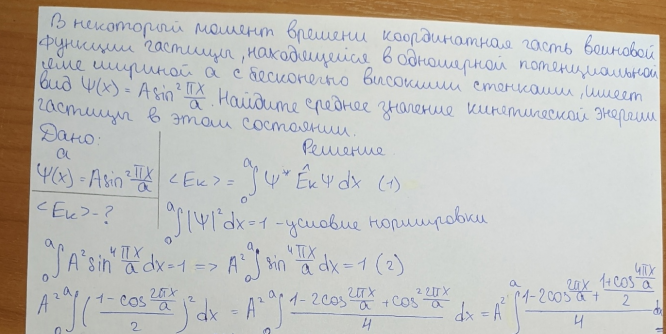 В некоторый момент времени координатная часть волновой
функции частицы, находящейся в одномерной потенциальной
яме шириной a с бесконечно высокими стенками, имеет
вид Ψ(x) = A sin² πx/a. Найдите среднее значение кинетической энергии
частицы в этом состоянии.
Дано:
Решение
a
Ψ(x) = A sin² πx/a
<Eк> = ₀∫ᵃ Ψ* Êк Ψ dx (1)
<Eк> - ?
₀∫ᵃ |Ψ|² dx = 1 - условие нормировки
₀∫ᵃ A² sin⁴ πx/a dx = 1 => A² ₀∫ᵃ sin⁴ πx/a dx = 1 (2)
A² ₀∫ᵃ ((1 - cos 2πx/a)/2)² dx = A² ₀∫ᵃ (1 - 2cos 2πx/a + cos² 2πx/a)/4 dx = A² ₀∫ᵃ (1 - 2cos 2πx/a + (1 + cos 4πx/a)/2)/4 dx